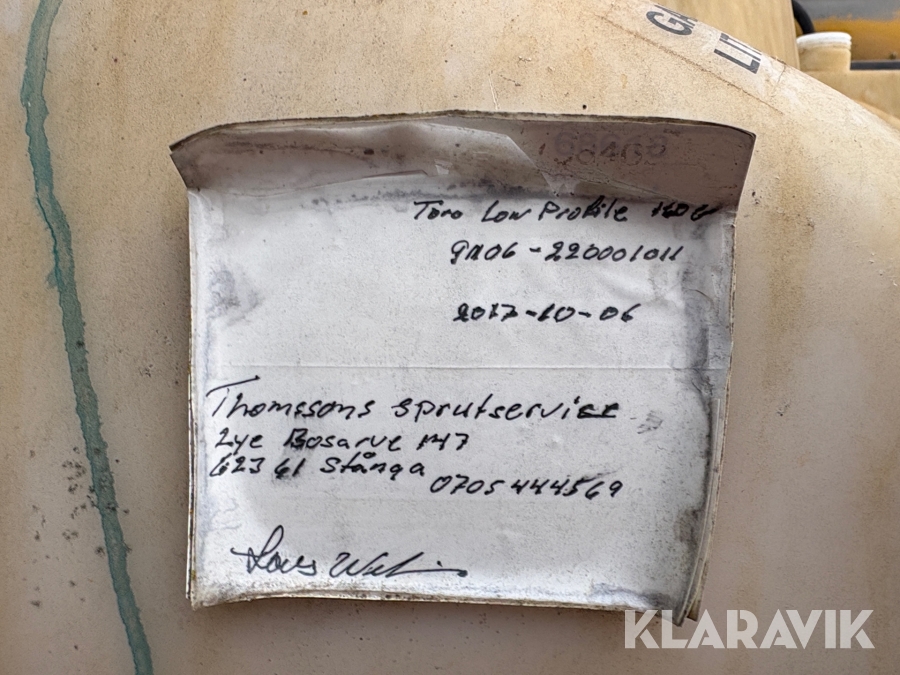 GA
LIT
68468
Toro Low Profile
9106-220001011
2017-10-06
Thomssons sprutservice
Lye Bosarve 147
623 61 Stånga
0705444569
KLARAVIK